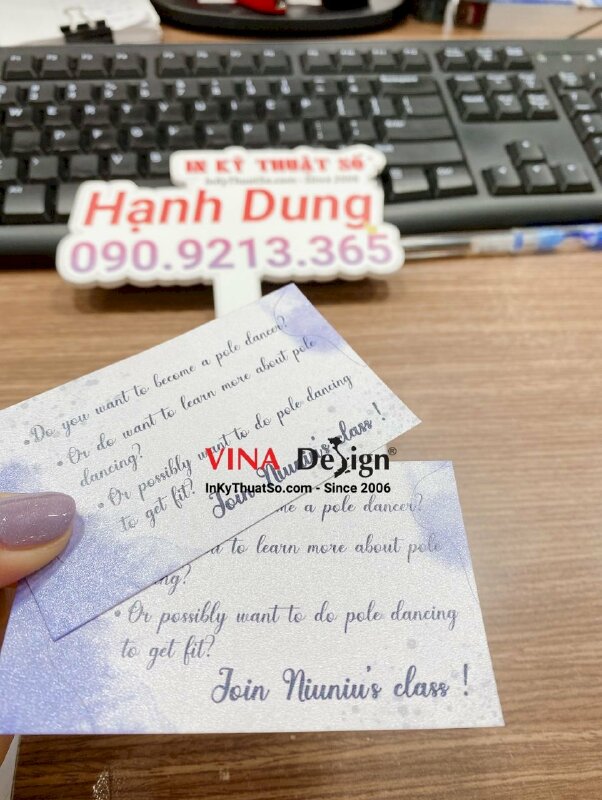 IN KỸ THUẬT SỐ
InKyThuatSo.com - Since 2006
Hạnh Dung
090.9213.365
• Do you want to become a pole dancer?
• Or do want to learn more about pole
dancing?
• Or possibly want to do pole dancing
to get fit?
Join Niuniu's class !
VINA Design®
InKyThuatSo.com - Since 2006
me a pole dancer?
to learn more about pole
ng?
• Or possibly want to do pole dancing
to get fit?
Join Niuniu's class !